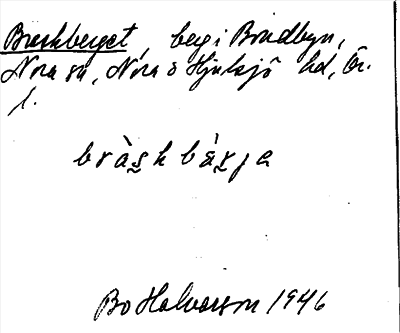 Braskberget, berg i Brudbyn,
Nora sn, Nora o Hjulsjö hd, Ör.
l.
bràs̰kbàr̰ja
Bo Halvarson 1946